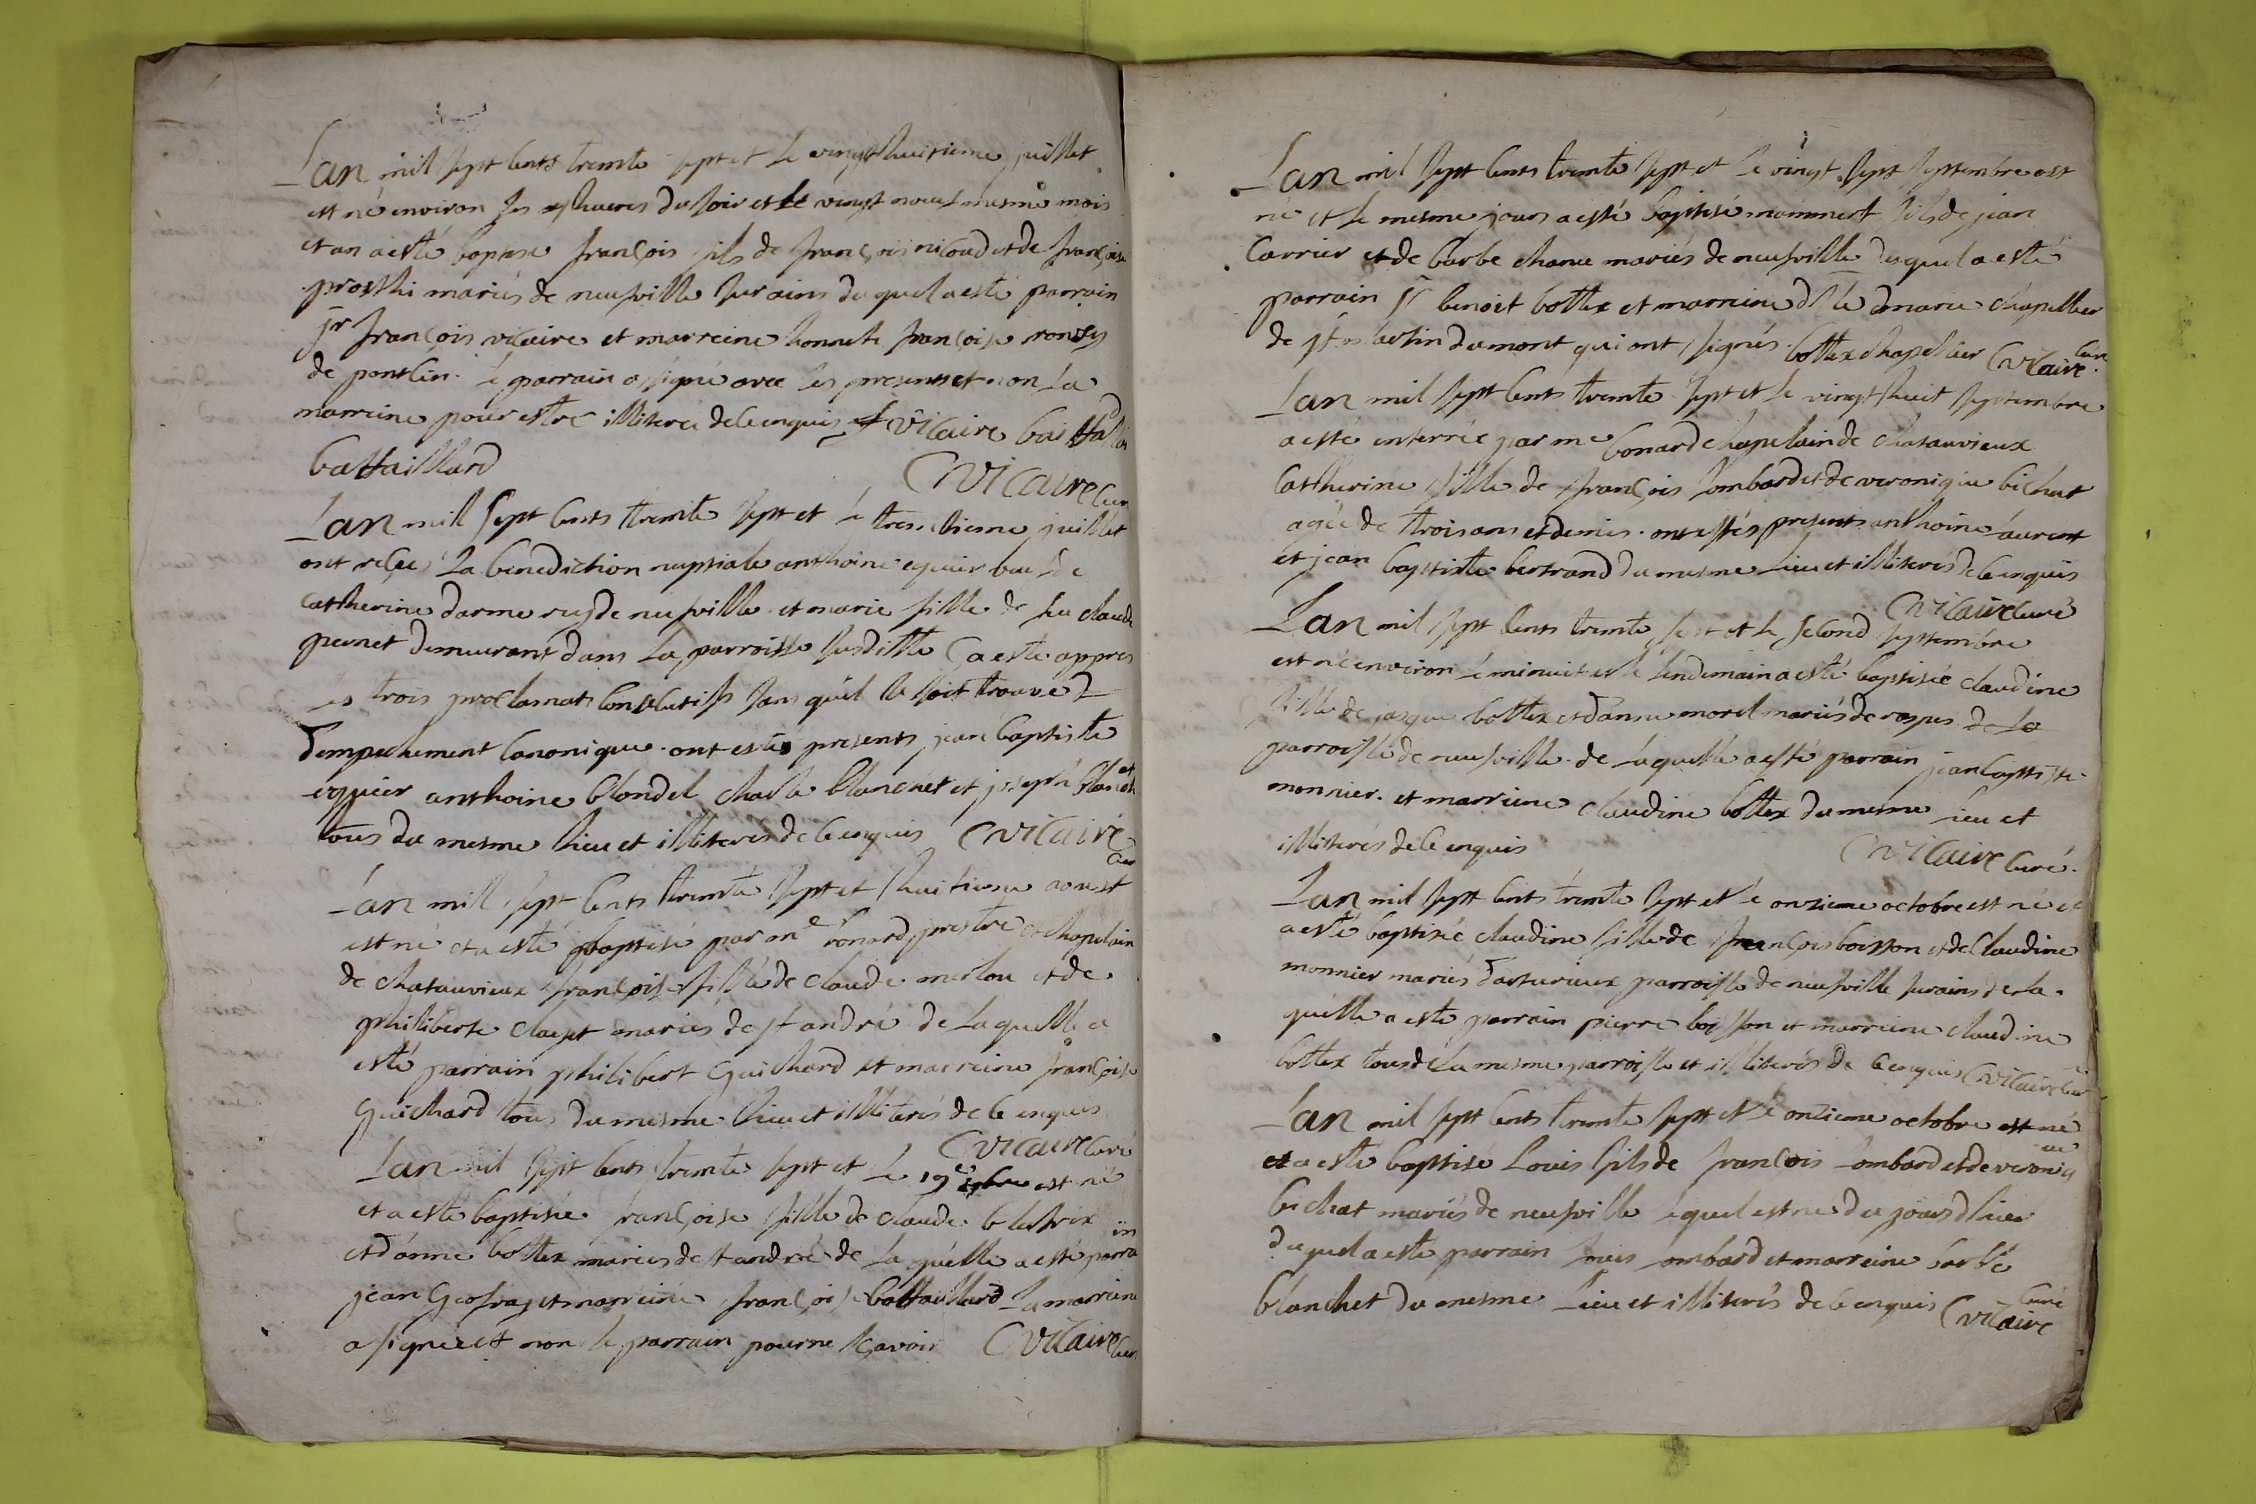 Lan mil sept cents trente sept et le vingt huitieme juillet
est né environ six heures du soir et le vingt neuf mesme mois
et an a esté baptisé françois fils de françois nicoud et de françoise
prosthi mariés de neufville sur ains duquel a esté parrain
sr françois vicaire et marreine honnete françoise
de pontlin. le parrain a signé avec les presents et non la
marreine pour estre illiterée de ce enquis f vicaire
battaillard CVicaire cur
Lan mill sept cents trente sept et le juillet
ont reçeu La benediction nuptiale anthoine equier veuf de
catherine darmerey de neufville et marie fille de feu claude
peunet demeurant dans La parroisse susditte ça esté appres
les trois proclamat consecutifs sans qu'il se soit trouvé
d'empechement canonique. ont estés presents jean baptiste
equier anthoine blondel charle blanchet et joseph blanchet
tous du mesme lieu et illiterés de ce enquis CVicaire
cur
Lan mill sept cents trente sept et huitieme aoust
est né et a esté baptisé par me bonard prestre et chapelain
de chatauvieux françoise fille de claude merlou et de
philiberte clayet mariés de st andré de Laquelle a
esté parrain philibert Guichard et marreine françoise
Guichard tous du mesme lieu et illiterés de ce enquis
CVicaire curé
Lan mil sept cents trente sept et Le 19e est né
et a esté baptisée françoise fille de claude
et d'anne bottex mariés de st andré de La quelle a esté parrain
jean Geofray et marreine françoise battaillard La marreine
a signée et non le parrain pour ne sçavoir CVicaire cur.
Lan mil sept cents trente sept et Le vingt sept septembre est
né et le mesme jours a esté baptisé fils de jean
Carrier et de barbe chanue mariés de neufville duquel a esté
parrain sr benoit bottex et marreine dlle marie chapellier
de st martin du mont qui ont signés. bottex chapelier CVicaire curé
Lan mil sept cents trente sept et Le vingt huit septembre
a esté enterrée par me bonard chapelain de chatauvieux
Catherine fille de françois Lombard et de veronique bichat
agée de trois ans et demis. ont estés presents anthoine Laurent
et jean baptiste bertrand du mesme Lieu et illiterés de ce enquis
CVicaire curé
Lan mil sept cents trente sept et le second septembre
est né environ Le minuit et le lendemain a esté baptisée claudine
fille de jasque bottex et d'anne morel mariés de rospes de La
parroisse de neufville. de Laquelle a esté parrain jean baptiste
monnier. et marreine claudine bottex du mesme Lieu et
illiterés de ce enquis CVicaire curé.
Lan mil sept cents trente sept et Le onzieme octobre est né et
a esté baptisée claudine fille de françois boisson et de Claudine
monnier mariés parroisse de neufville surains de La
quelle a esté parrain pierre boisson et marreine claudine
bottex tous de La mesme parroisse et illiterés de ce enquis CVicaire cur
Lan mil sept cents trente sept et Le onzieme octobre est né
et a esté baptisé Louis fils de françois Lombard et de veronique
bichat mariés de neufville lequel est né du jours d'hier
duquel a esté parrain Louis Lombard et marreine barbe
blanchet du mesme Lieu et illiterés de ce enquis CVicaire curé